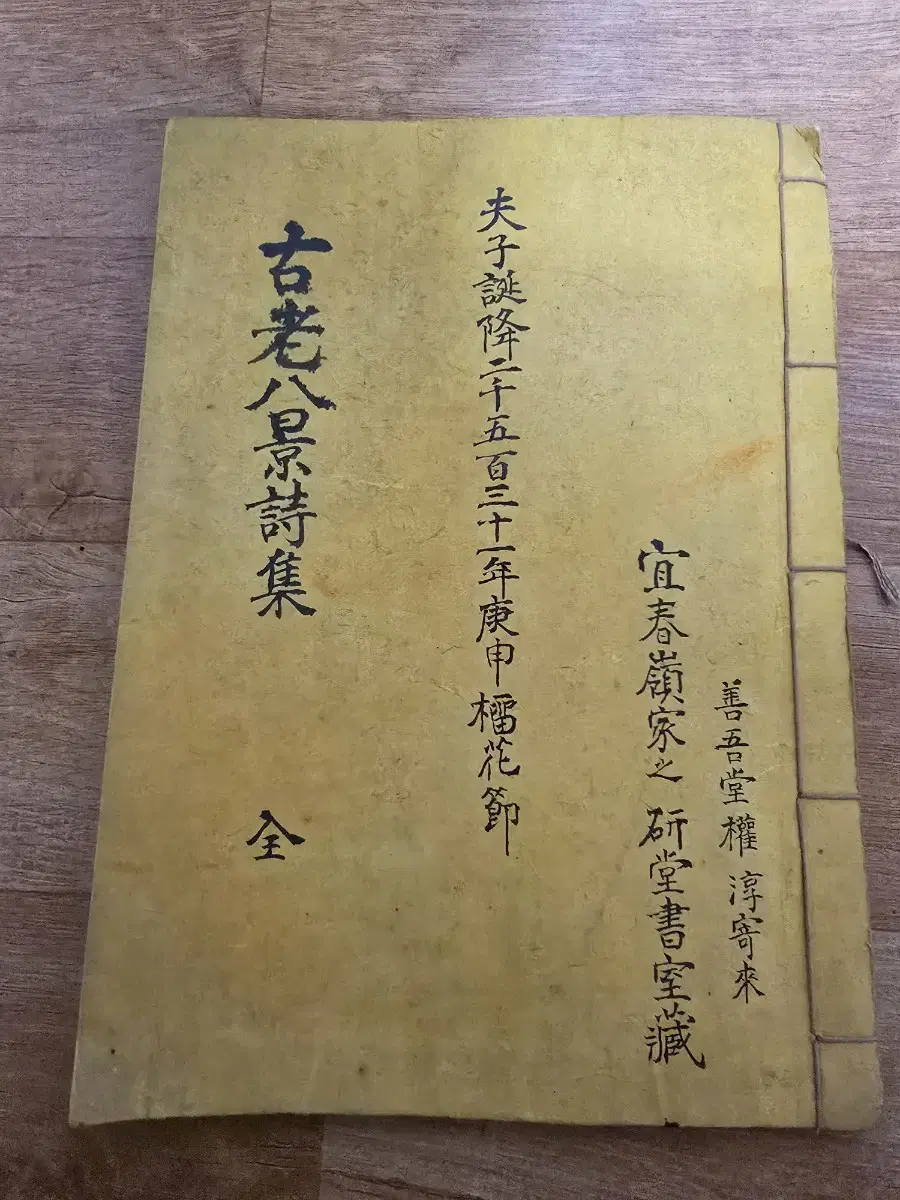 善吾堂權淳寄來
宜春嶺家之研堂書室藏
夫子誕降二千五百三十一年庚申榴花節
古老八景詩集
全